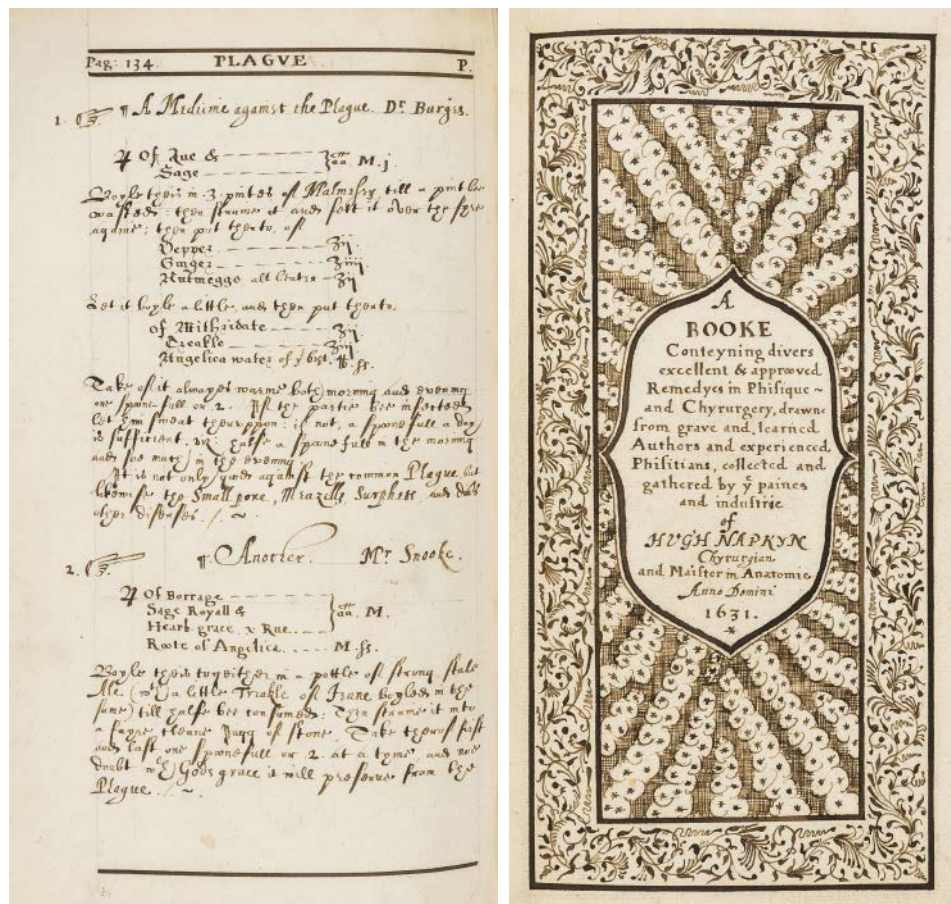 Pag: 134. PLAGVE P.
1. ¶ A Medicine against the Plague. Dr Burges.
♃ Of Rue & ana M. j
Sage
Boyle theis in .3. pintes of Malmesey till a pint bee
wasted: then straine it and sett it over the fyre
againe; then put therto, of
Pepper ʒij.
Ginger ʒiiij.
Nutmeggs ʒij
Let it boyle a little, and then put therto.
of Mithridate ʒij.
Treakle ʒiij.
Angelica water of ye best. ss.
Take of it alwayes warme both morning and evening
one spoone full or 2. If the partie bee infected
let him sweat theruppon: if not, a spoonefull a day
is sufficient, viz: halfe a spoonefull in the morning
and soe much in the evening
It is not only good against the common Plague, but
likewise the Small poxe, Meazells, Surphets, and
other diseases. /. ~
2. ¶. Another. Mr Snooke.
♃ Of Borrage
Sage Royall & ana. M.
Hearb. grace. x Rue.
Roote of Angelica. M. ss.
Boyle theis togeither in a pottle of strong stale
Ale (wth a little Treakle of Jeane boyled in the
same) till halfe bee consumed: Then straine it into
a fayre cleane Jugg of stone. Take therof first
and last one spoonefull or 2. at a tyme and noe
doubt wth Gods grace it will preserve from the
Plague. /. ~
A
BOOKE
Conteyning divers
excellent & approoved
Remedyes in Phisique ~
and Chyrurgery, drawne
from grave and learned
Authors and experienced
Phisitians, collected and
gathered by ye paines
and industrie
of
HVGH NAPKYN
Chyrurgian
and Maister in Anatomie
Anno Domini
1631.